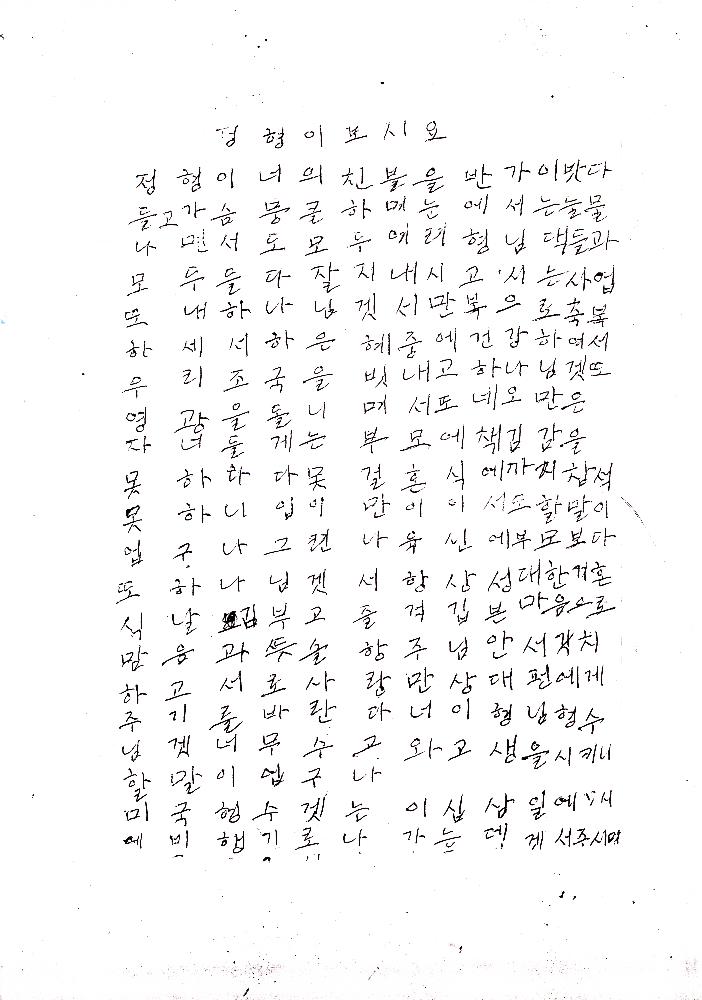 정 형 이 보 시 요
정 형 이 너 의 친 불 을 반 가 이 밧다
들고 가 슴 뭉 클 하 며 눈 에 서 는 눌물
나 면 서 도 모 두 에 려 형 님 댁들과
모 두 들 다 잘 지 내 시 고 시 는 사업
또 내 하 나 님 겟 서 만 복 으 로 축복
하 세 서 하 은 혜 중 에 건 감 하 여서
우 리 조 국 을 빗 내 고 하나 님 겟또
영 광 을 돌 니 며 서 또 네 오 만 은
자 녀 들 게 는 부 모 에 책 김 감 을
못 하 다 못 결 혼 식 에까지 참석
못 하 니 입 이 만 이 이 서도 할말이
업 구 나 그 련 나 육 신 에부모보다
또 하 나 님 겟 서 항 상 성대한겨혼
식 날 부 고 즐 겨 깁 븐 마음으로
맘 음 과 뜻 술 항 주 님 안 서 갖치
하 고 서 로 사 랑 만 상 대 편에게
주 기 를 바 란 다 너 이 형 님 형수
님 겟 너 무 수 고 와 고 생 을 시키니
할 말 이 업 구 나
미 국 형 수 겟 는 이 십 삼 일 에 시
에 비 행 기 로 나 가 는 데 게 서주시며